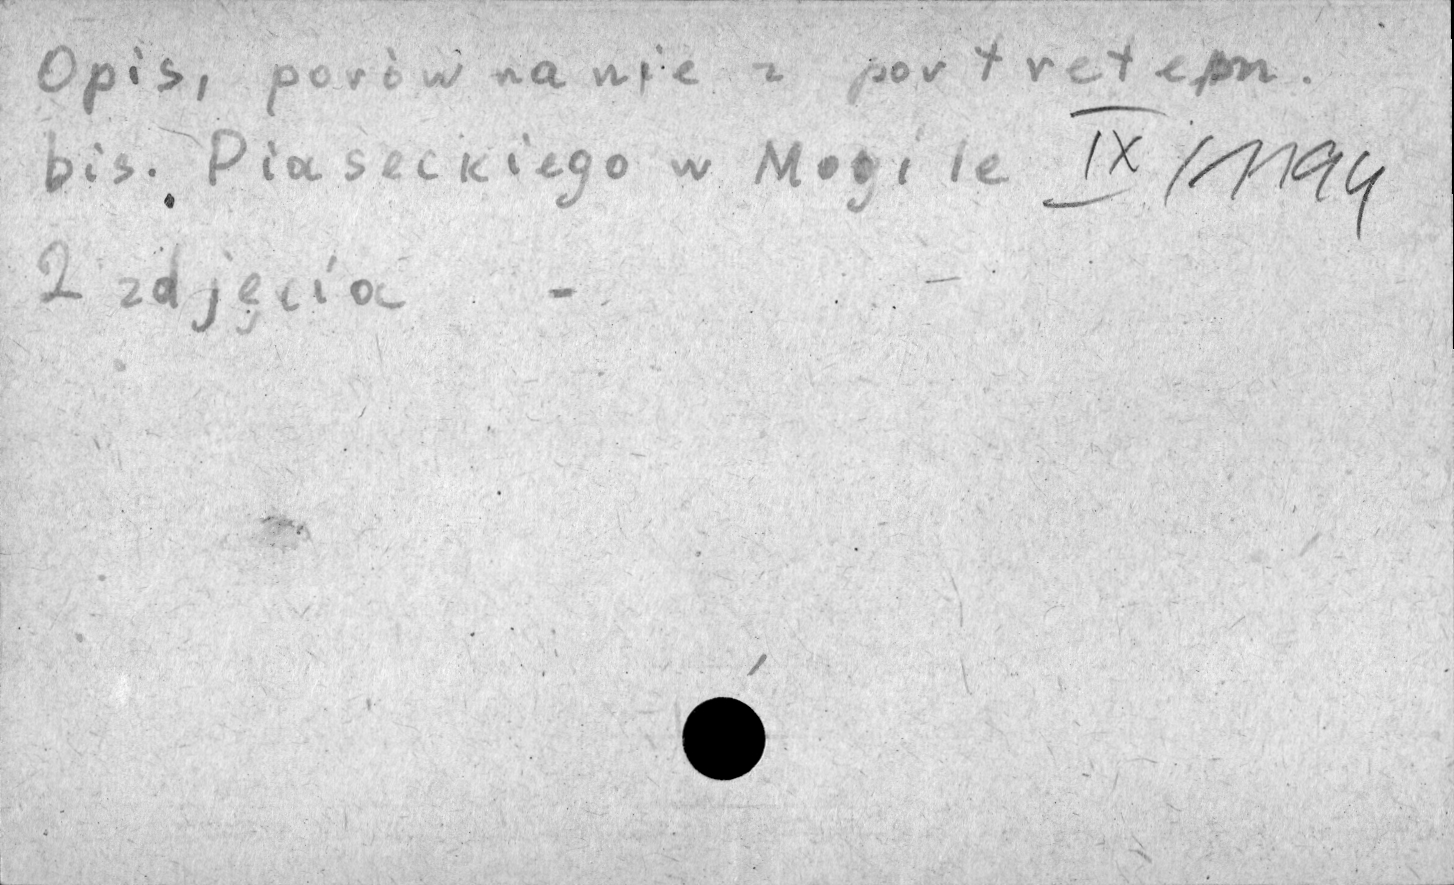 Opis, porównanie z portretem.
bis. Piaseckiego w Mogile IX
2 zdjęcia - -